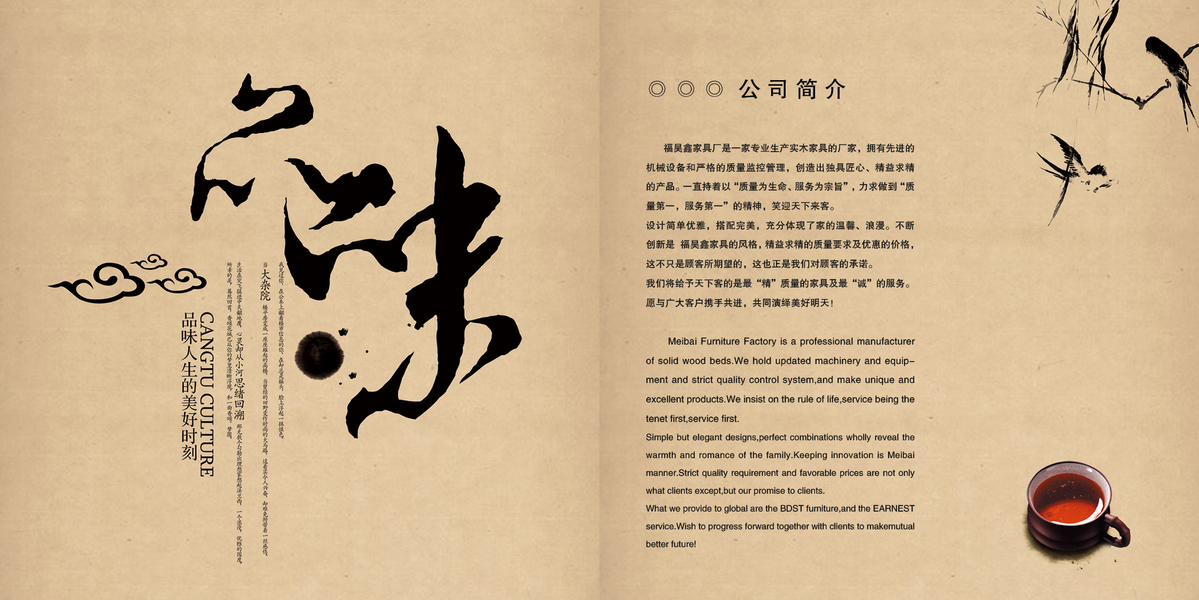 品味
大杂院
心灵却从小河思绪回溯
CANGTU CULTURE
品味人生的美好时刻
◎ ◎ ◎ 公司简介
福昊鑫家具厂是一家专业生产实木家具的厂家，拥有先进的
机械设备和严格的质量监控管理，创造出独具匠心、精益求精
的产品。一直持着以“质量为生命、服务为宗旨”，力求做到“质
量第一，服务第一”的精神，笑迎天下来客。
设计简单优雅，搭配完美，充分体现了家的温馨、浪漫。不断
创新是 福昊鑫家具的风格，精益求精的质量要求及优惠的价格，
这不只是顾客所期望的，这也正是我们对顾客的承诺。
我们将给予天下客的是最“精”质量的家具及最“诚”的服务。
愿与广大客户携手共进，共同演绎美好明天！
Meibai Furniture Factory is a professional manufacturer
of solid wood beds.We hold updated machinery and equip-
ment and strict quality control system,and make unique and
excellent products.We insist on the rule of life,service being the
tenet first,service first.
Simple but elegant designs,perfect combinations wholly reveal the
warmth and romance of the family.Keeping innovation is Meibai
manner.Strict quality requirement and favorable prices are not only
what clients except,but our promise to clients.
What we provide to global are the BDST furniture,and the EARNEST
service.Wish to progress forward together with clients to makemutual
better future!